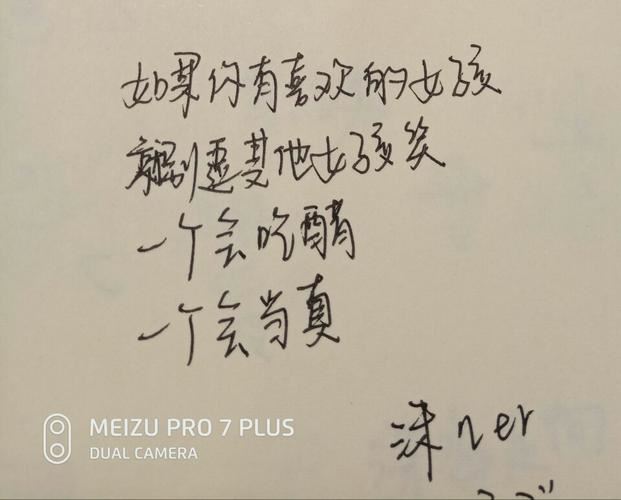 如果你有喜欢的女孩
就别逗其他女孩笑
一个会吃醋
一个会当真
MEIZU PRO 7 PLUS
DUAL CAMERA